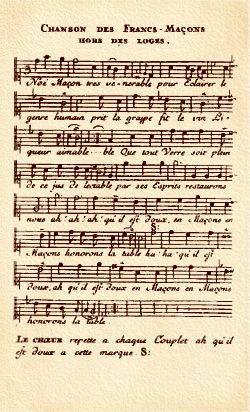 CHANSON DES FRANCS-MAÇONS
HORS DES LOGES.
Noé Maçon tres venerable pour Eclairer le
genre humain prit la grappe fit le vin Li-
queur aimable-ble Que tout Verre soit plein
de ce jus delectable par ses Esprits restaurons
nous ah! ah! ah! qu'il est doux, en Maçons en
S:
Maçons honorons la table ha! ha! qu'il est
doux, ah qu'il est doux en Maçons en Maçons
honorons la table
LE CHŒUR repette a chaque Couplet ah qu'il
est doux a cette marque. S: